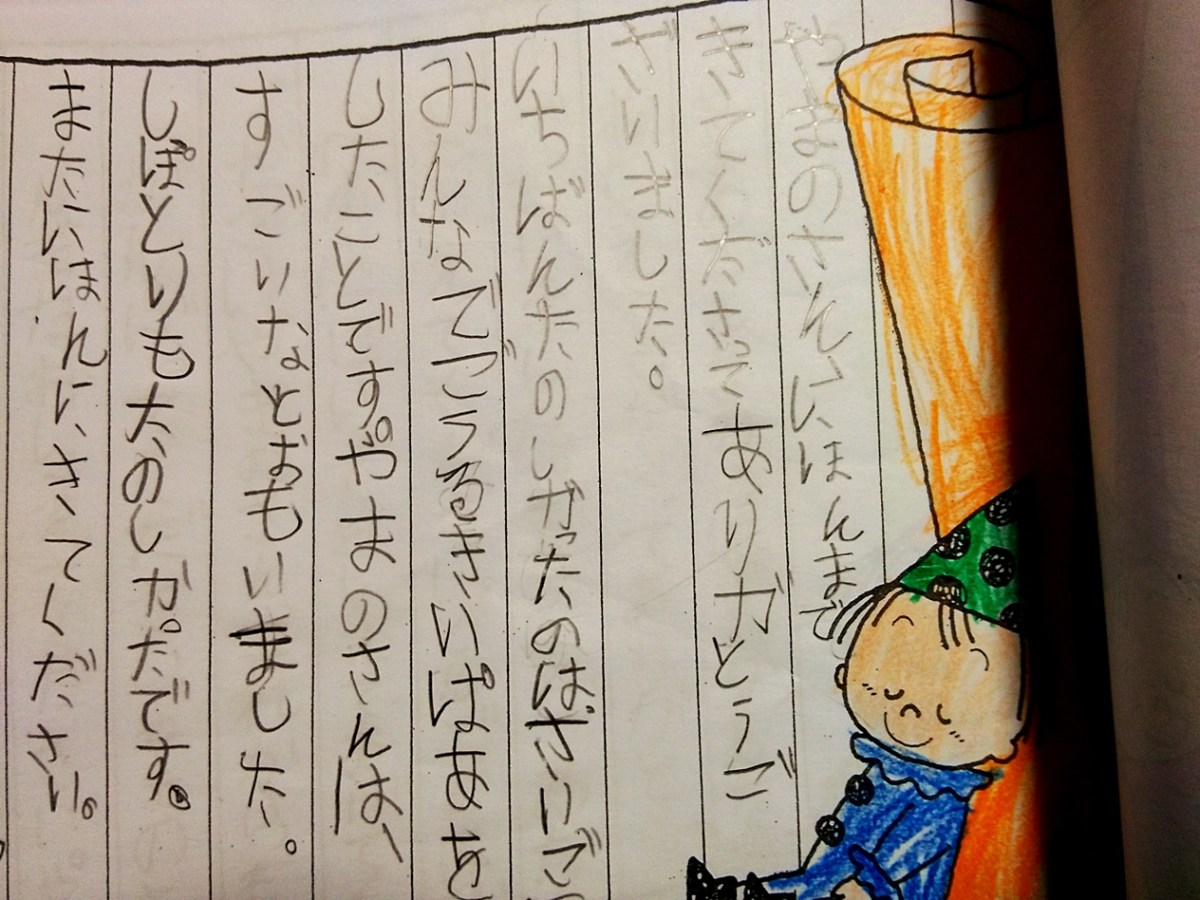 やまのさん、にほんまで
きてくださてありがとうご
ざいました。
いちばんたのしかったのはさいご
みんなでごうるきいぱあを
したことです。やまのさんは、
すごいなとおもいました。
しぽとりもたのしかったです。
またにほんにきてください。